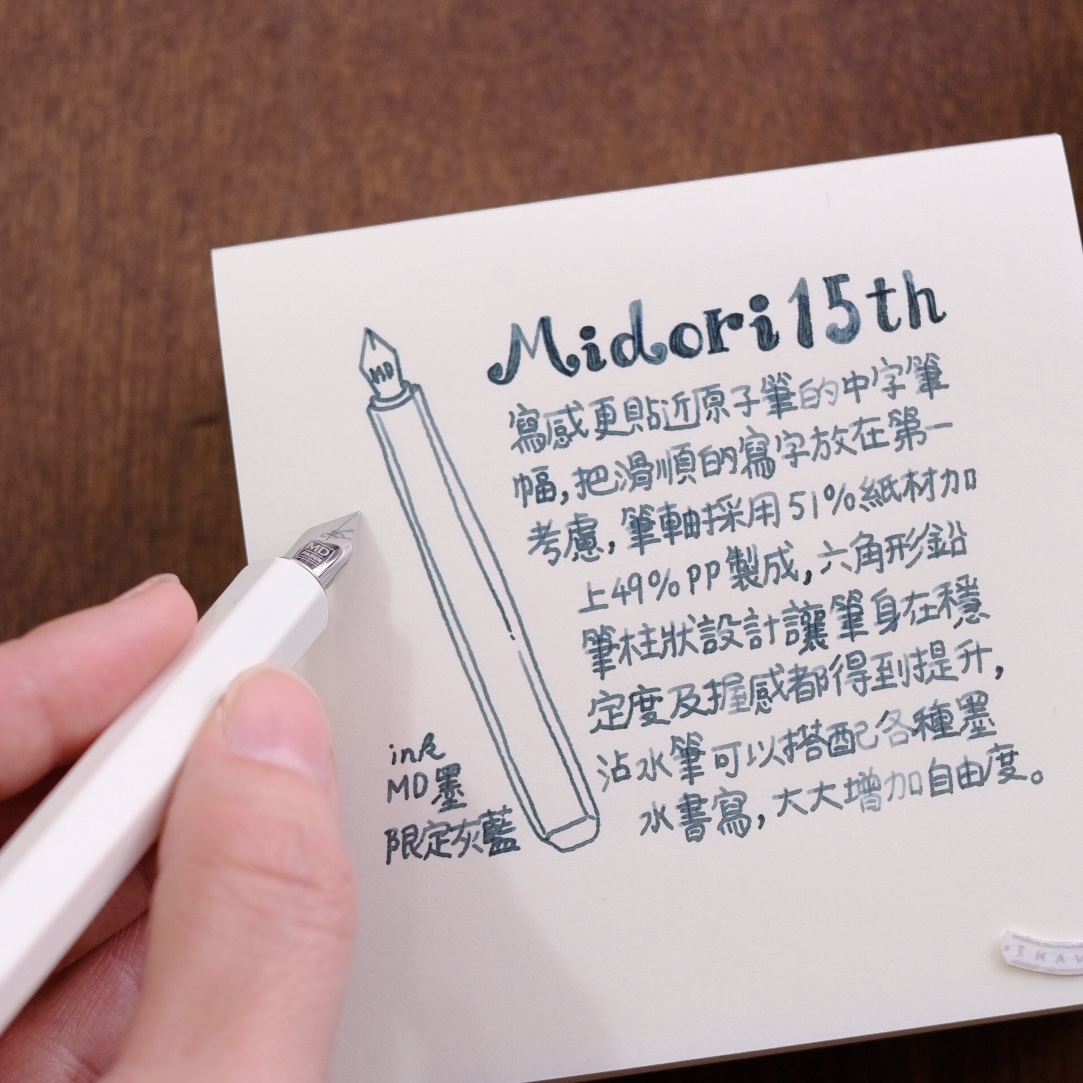 Midori 15th
寫感更貼近原子筆的中字筆
幅,把滑順的寫字放在第一
考慮,筆軸採用51%紙材加
上49%PP製成,六角形鉛
筆柱狀設計讓筆身在穩
定度及握感都得到提升,
沾水筆可以搭配各種墨
水書寫,大大增加自由度。
MD
MD
ink
MD墨
限定灰藍